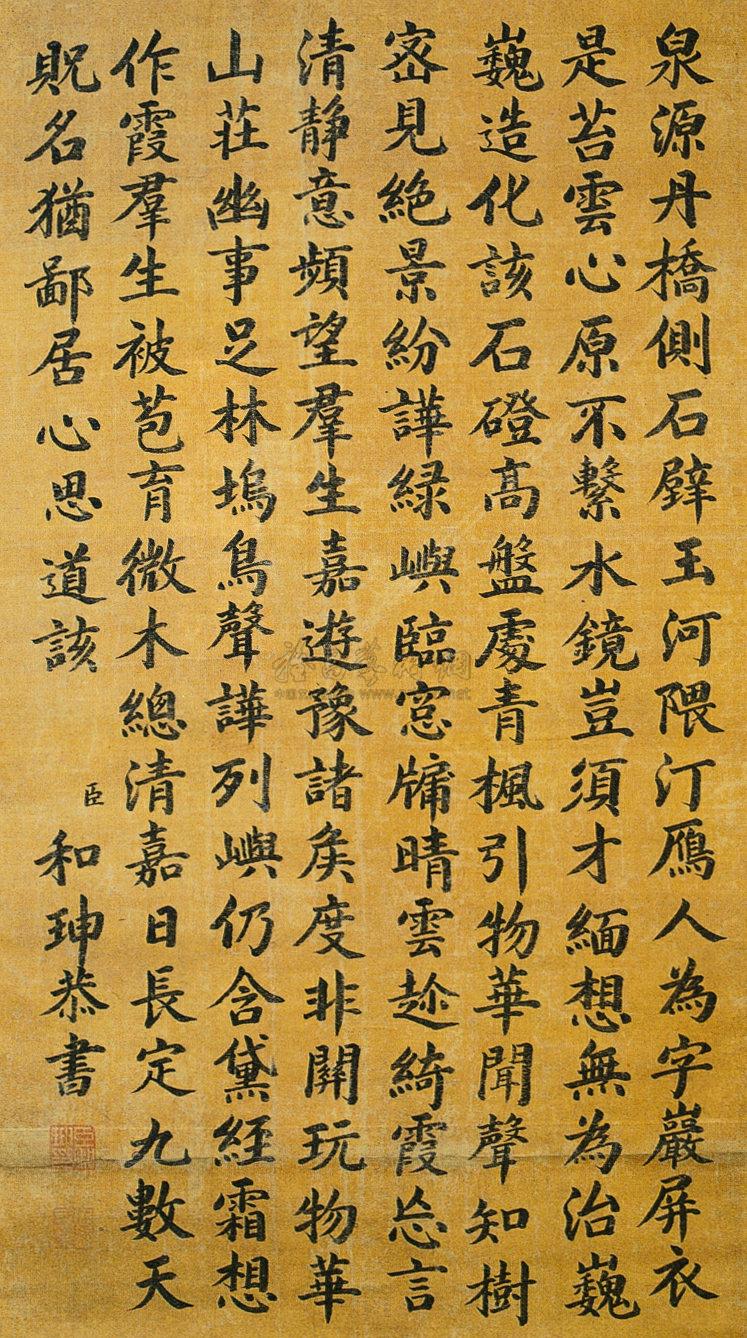 泉源丹橋側石壁玉河隈汀鴈人為字巖屏衣
是苔雲心原不繫水鏡豈須才緬想無為治巍
巍造化該石磴高盤處青楓引物華聞聲知樹
密見絶景紛譁緑嶼臨窓牗晴雲趁綺霞忘言
清静意頻望羣生嘉遊豫諸侯度非關玩物華
山莊幽事足林塢鳥聲譁列嶼仍含黛經霜想
作霞羣生被苞育微木總清嘉日長定九數天
貺名猶鄙居心思道該 臣 和珅恭書